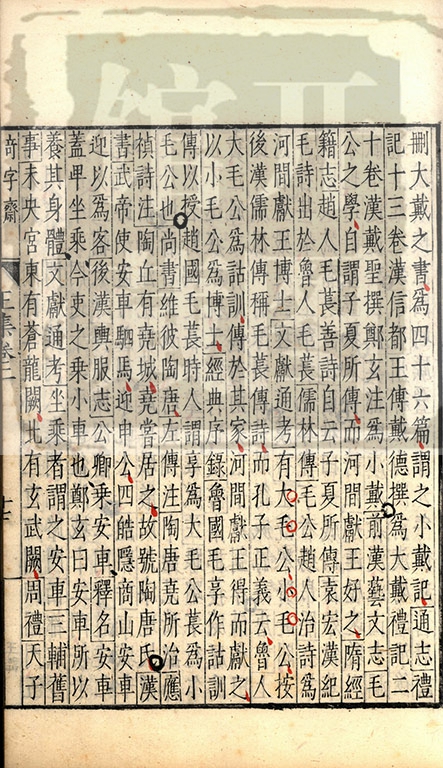 刪大戴之書爲四十六篇謂之小戴記通志禮
記十三卷漢信都王傳戴德撰爲大戴禮記二
十卷漢戴聖撰鄭玄注爲小戴前漢藝文志毛
公之學自謂子夏所傳而河間獻王好之隋經
籍志趙人毛萇善詩自云子夏所傳袁宏漢紀
毛詩出於魯人毛萇儒林傳毛公趙人治詩爲
河間獻王博士文獻通考有大毛公小毛公按
後漢儒林傳稱毛萇傳詩而孔子正義云魯人
大毛公爲詁訓傳於其家河間獻王得而獻之
以小毛公爲博士經典序錄魯國毛亨作詁訓
傳以授趙國毛萇時人謂亨爲大毛公萇爲小
毛公也尚書維彼陶唐左傳注陶唐堯所治應
禎詩注陶丘有堯城堯嘗居之故號陶唐氏漢
書武帝使安車駟馬迎申公四皓隱商山安車
迎以爲客後漢輿服志公卿乘安車釋名安車
蓋卑坐乘今吏之乘小車也鄭玄曰安車所以
養其身體文獻通考坐乘者謂之安車三輔舊
事未央宮東有蒼龍闕北有玄武闕周禮天子
奇字齋